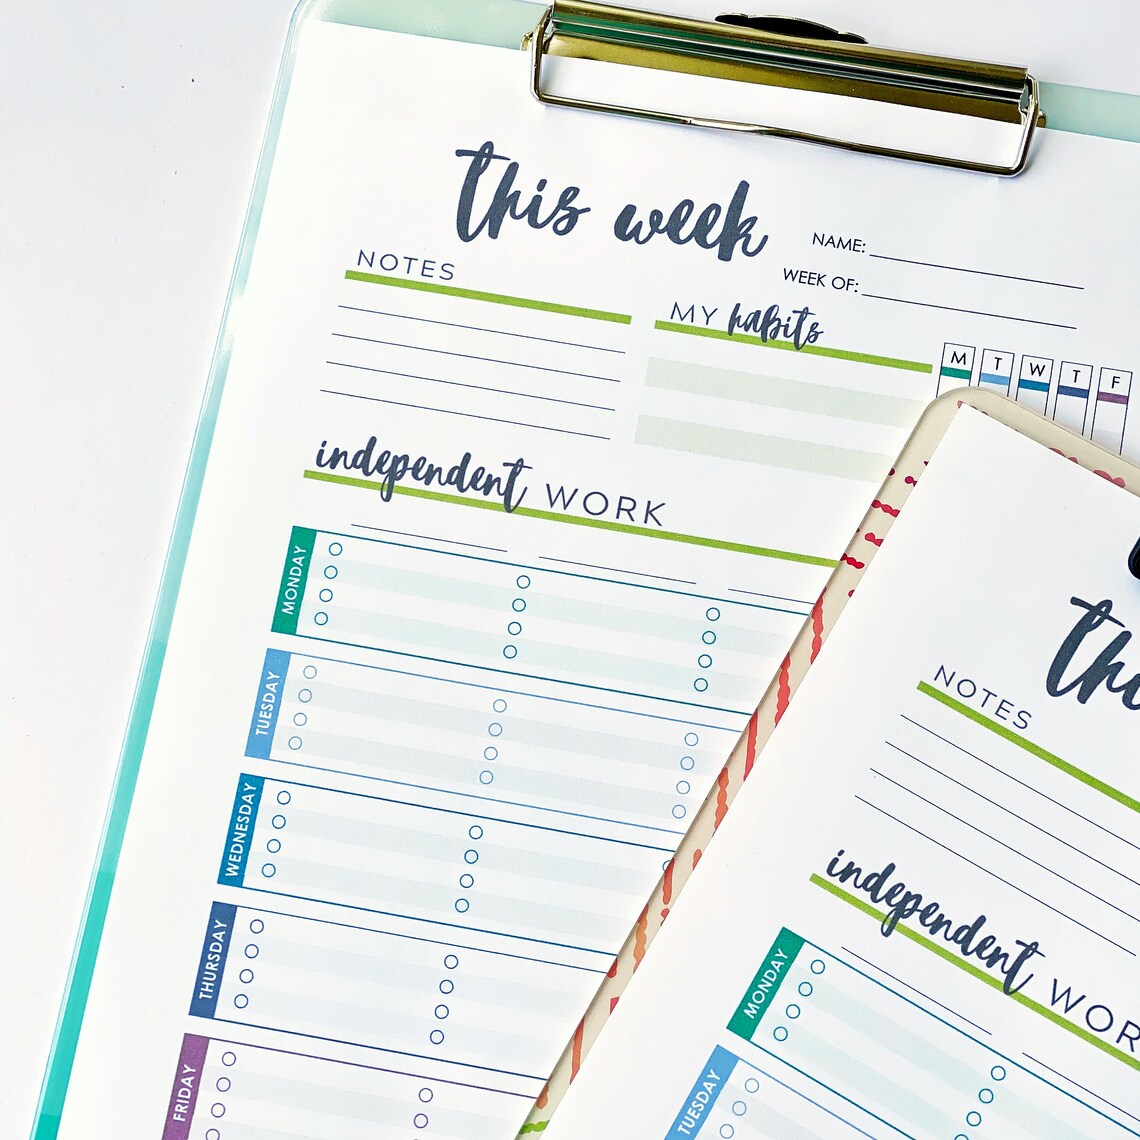 this week
NAME:
WEEK OF:
NOTES
MY habits
M T W T F
independent WORK
MONDAY
TUESDAY
WEDNESDAY
THURSDAY
FRIDAY
NOTES
independent
MONDAY
TUESDAY